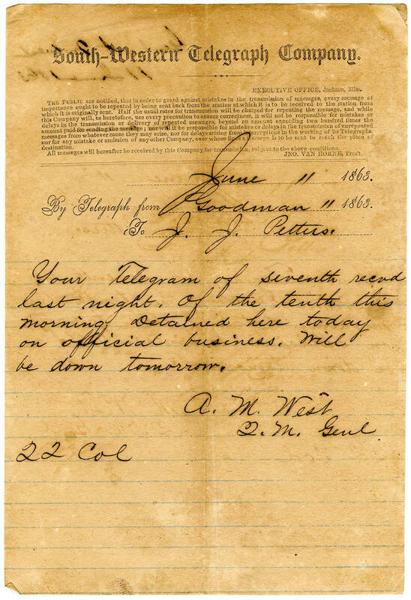 South-Western Telegraph Company.
EXECUTIVE OFFICE, Jackson, Miss.
THE PUBLIC are notified, that in order to guard against mistakes in the transmission of messages, every message of
importance ought to be repeated by being sent back from the station at which it is to be received to the station from
which it is originally sent. Half the usual rates for transmission will be charged for repeating the message, and while
this Company will, as heretofore, use every precaution to ensure correctness, it will not be responsible for mistakes or
delays in the transmission or delivery of repeated messages, beyond an
amount paid for sending the message; nor will it be responsible for mistakes or delays in the transmission of unrepeated
messages from whatever cause they may arise, nor for delays arising from interruptions in the working of its Telegraphs
nor for any mistake or omission of any other Company, over whose lines a message is to be sent to reach the place of
destination.
All messages will hereafter be received by this Company for transmission, subject to the above conditions.
JNO. VAN HORNE,
June 11 1863.
By Telegraph from Goodman 11 1863.
To J. J. Pettus.
Your Telegram of seventh recvd
last night. Of the tenth this
morning. Detained here today
on official business. Will
be down tomorrow.
A. M. West
Q. M. Genl
22 Col